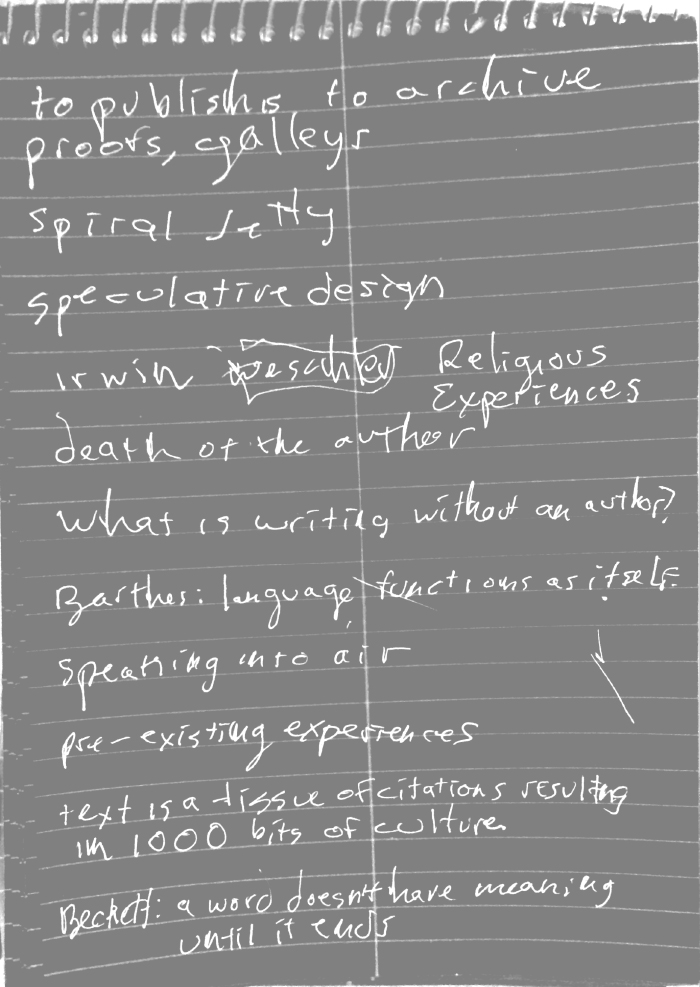 to publish is to archive
proofs, galleys
spiral Jetty
speculative design
irwin Religious
Experiences
death of the author
what is writing without an author?
Barthes: language functions as itself.
speaking into air
pre-existing experiences
text is a tissue of citations resulting
in 1000 bits of culture.
Beckett: a word doesn't have meaning
until it ends